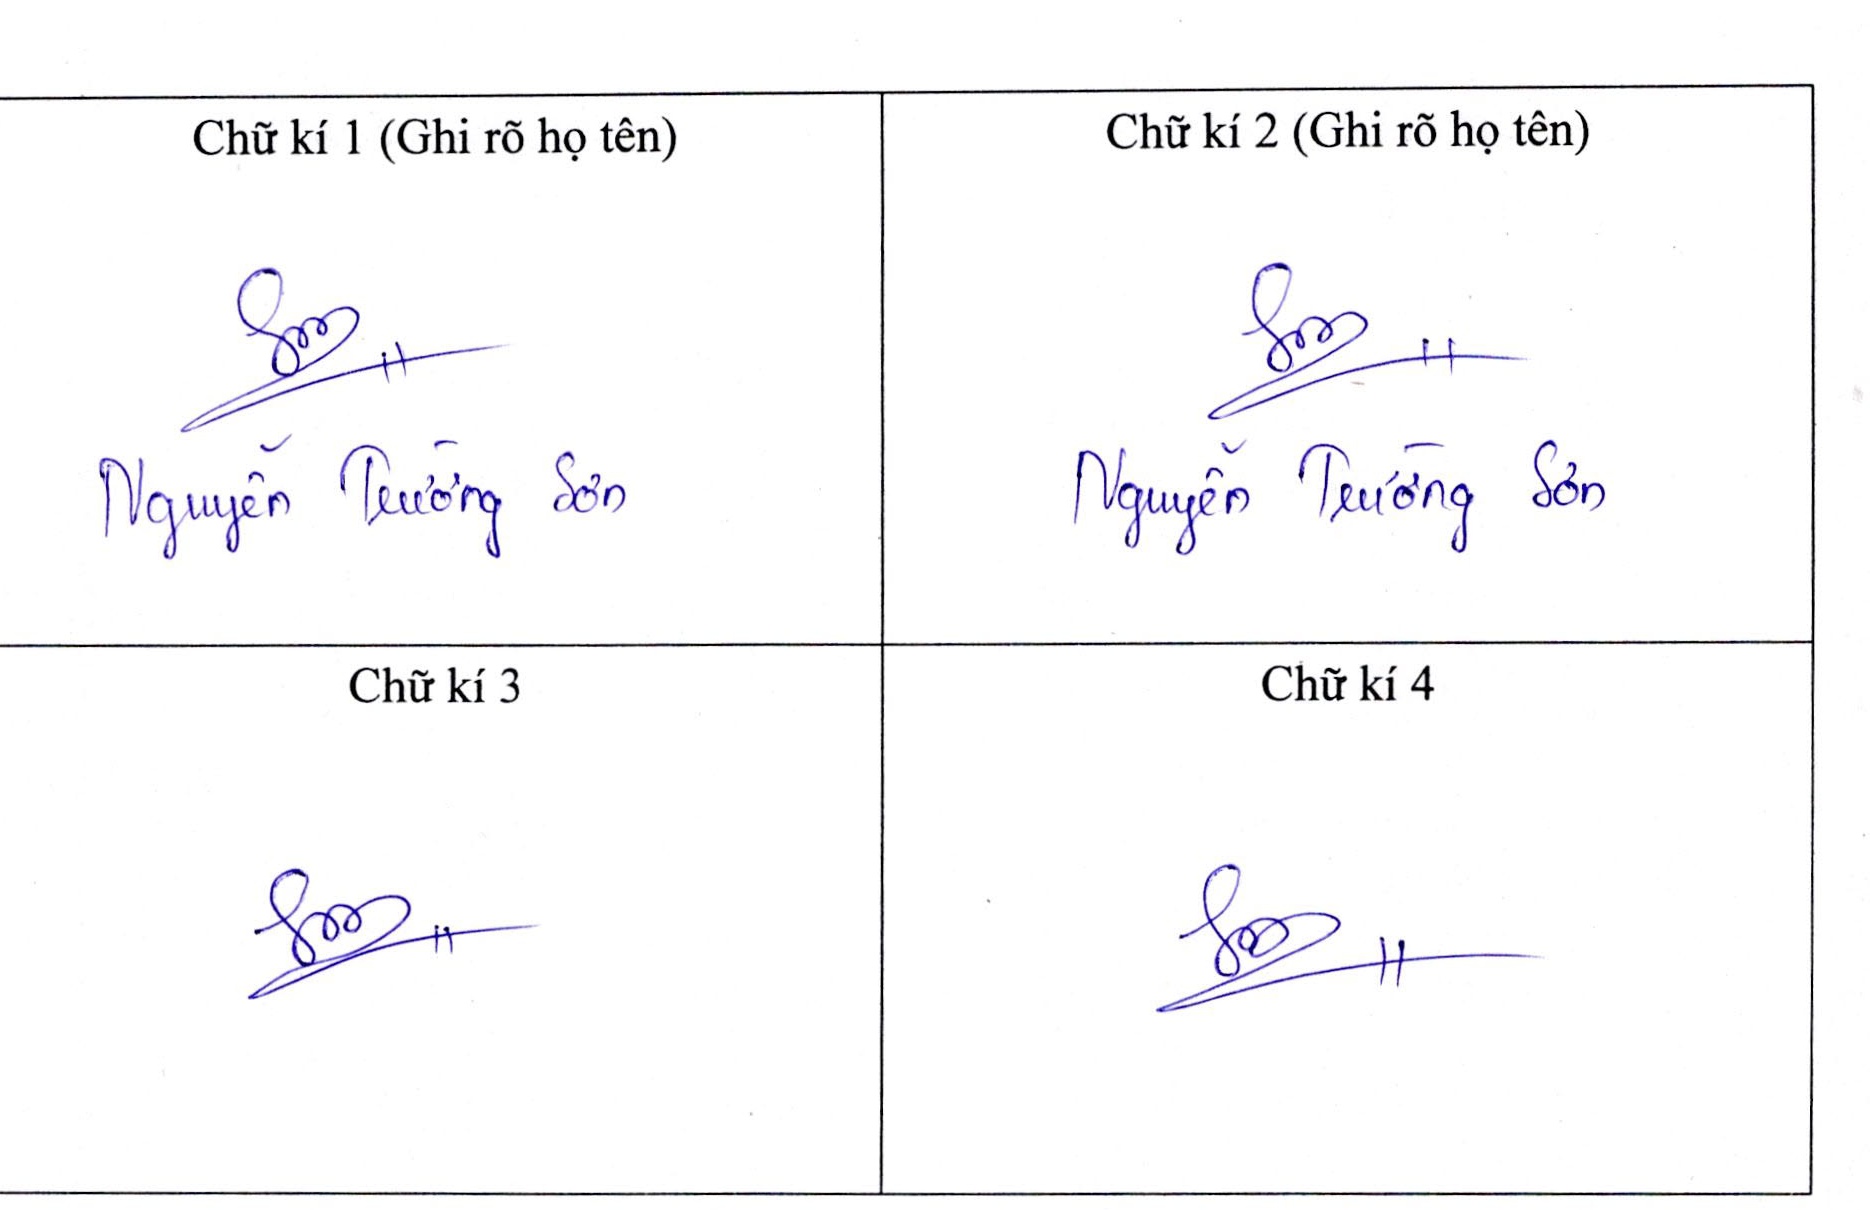 Chữ kí 1 (Ghi rõ họ tên)
Chữ kí 2 (Ghi rõ họ tên)
Nguyễn Trường Sơn
Nguyễn Trường Sơn
Chữ kí 3
Chữ kí 4